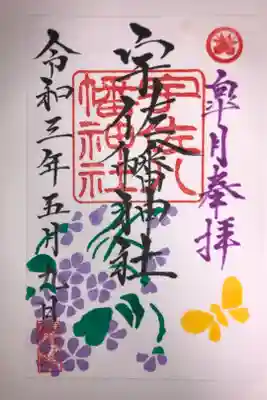 皐月奉拝
宇佐八幡神社
宇佐八
幡神社
令和三年五月九日